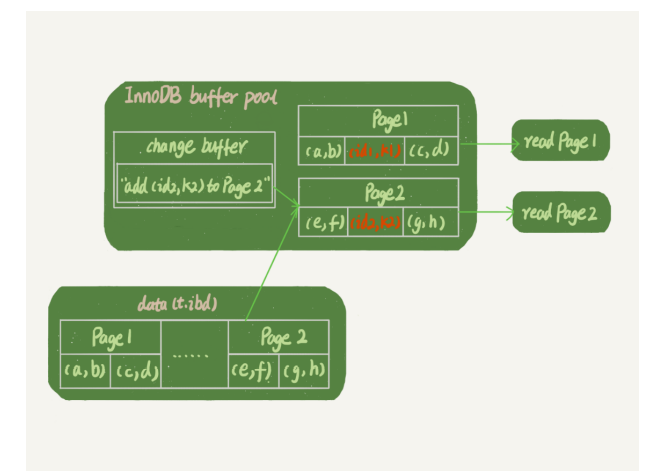 InnoDB buffer pool
change buffer
"add (id2,k2) to Page 2"
Page1
(a,b) (id1,k1) (c,d)
read Page 1
Page2
(e,f) (id2,k2) (g,h)
read Page 2
data (t.ibd)
Page 1
(a,b) (c,d)
......
Page 2
(e,f) (g,h)